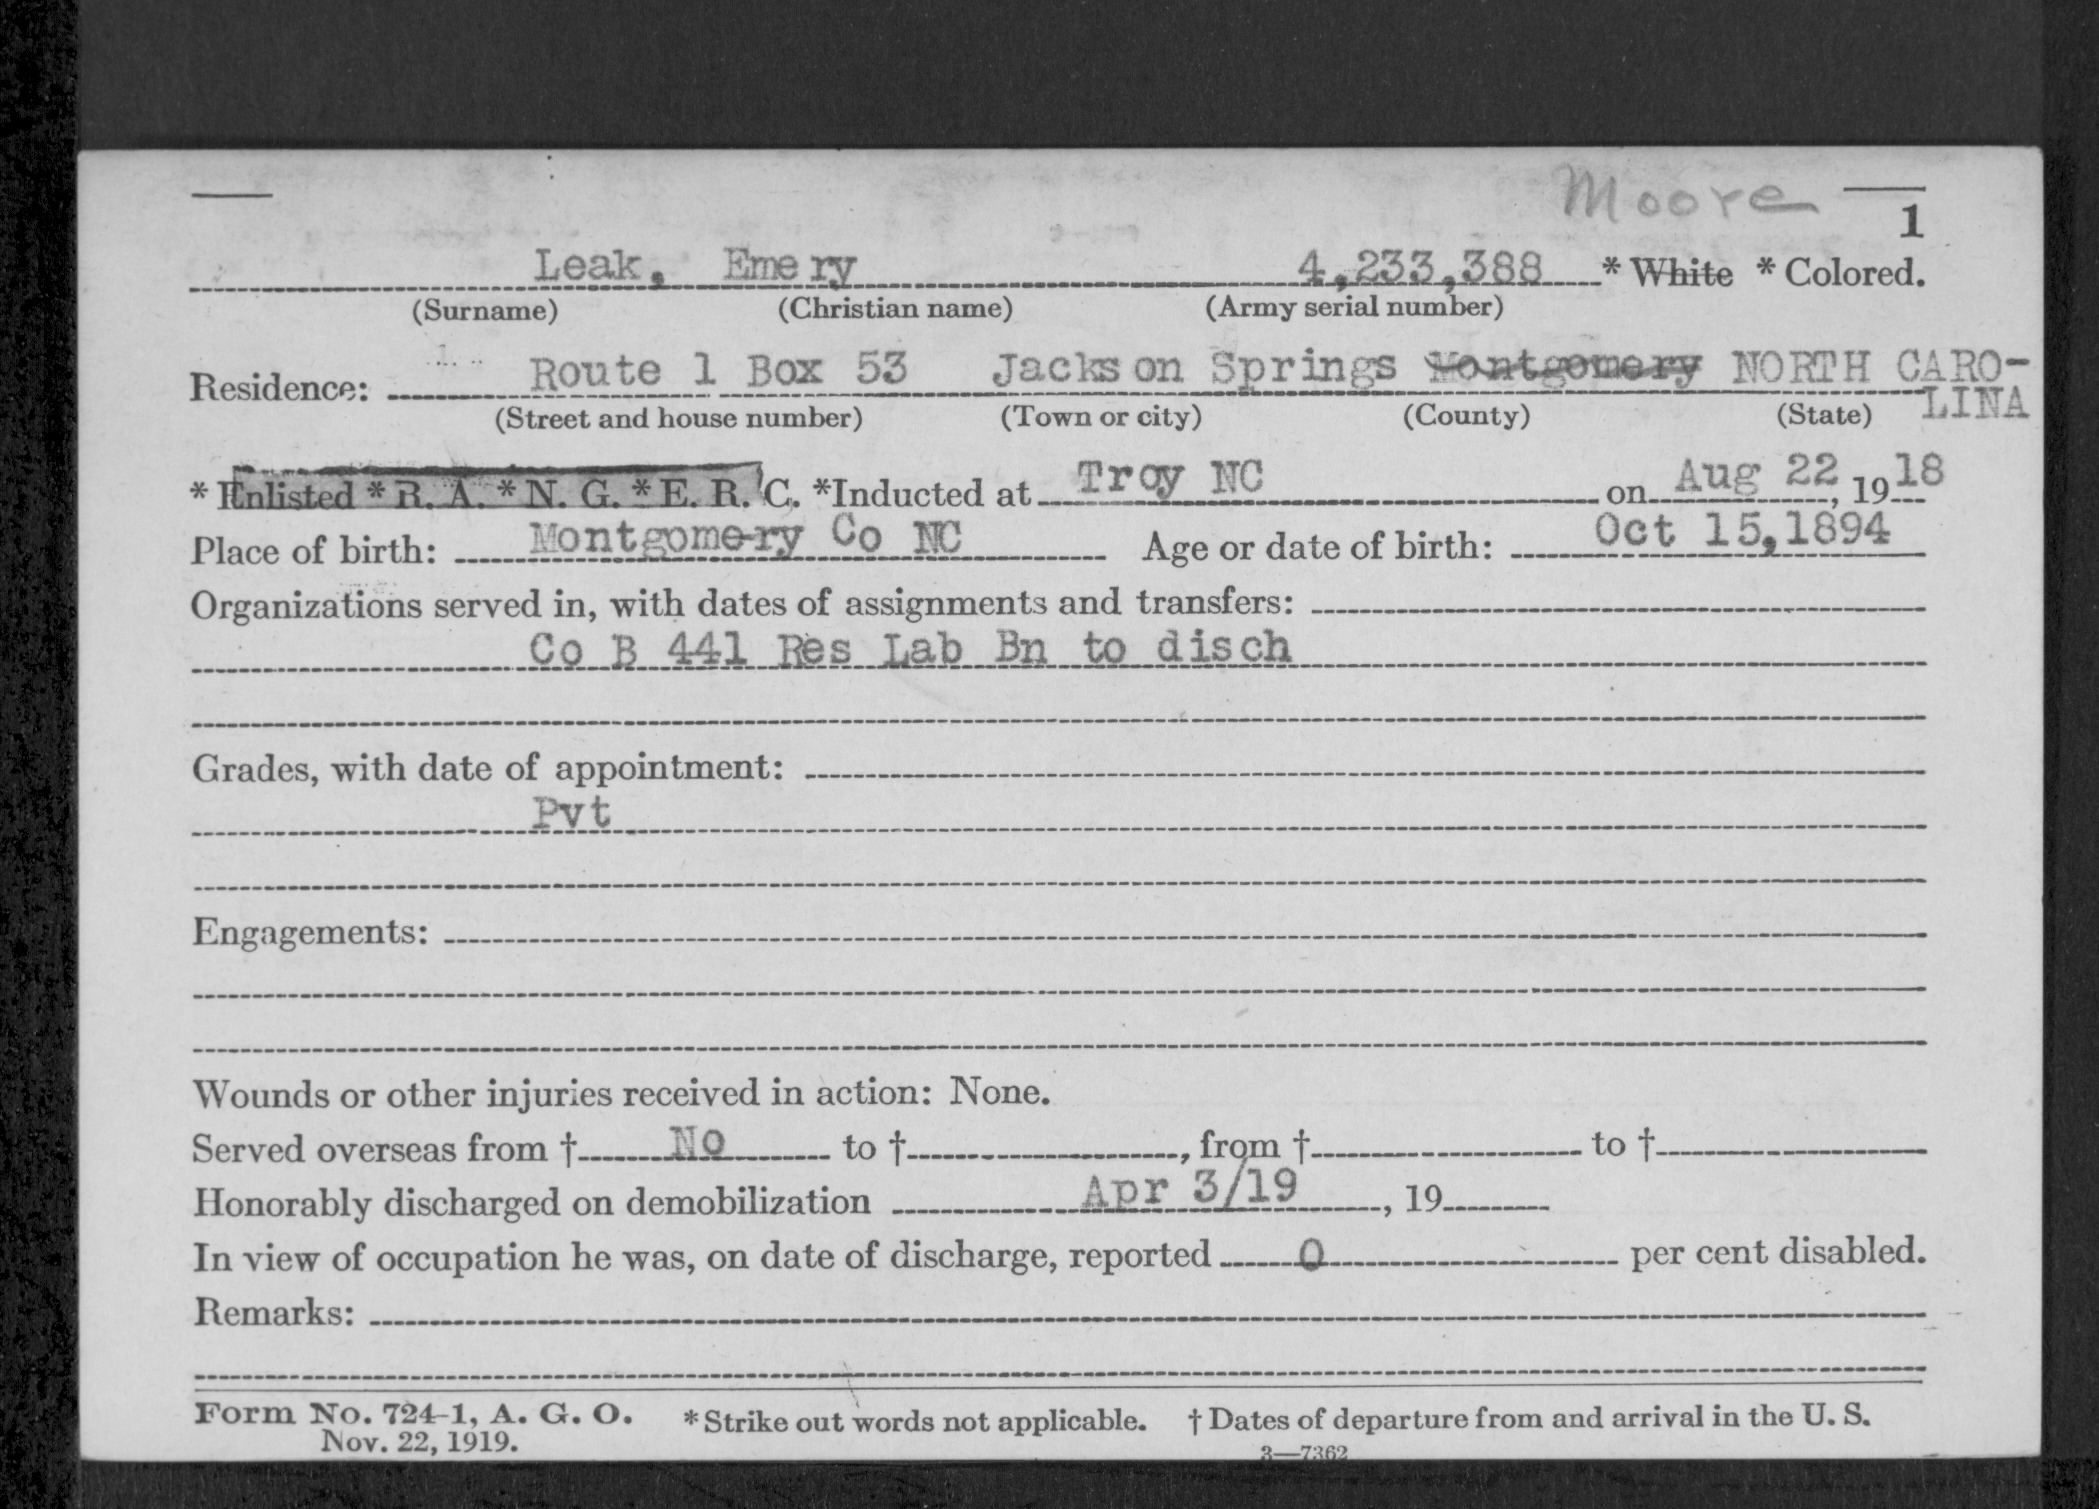 Moore
1
Leak, Emery 4,233,388 * White * Colored.
(Surname) (Christian name) (Army serial number)
Residence: Route 1 Box 53 Jackson Springs Montgomery NORTH CARO-
LINA
(Street and house number) (Town or city) (County) (State)
* Enlisted * R. A. * N. G. * E. R. C. *Inducted at Troy NC on Aug 22, 1918
Place of birth: Montgomery Co NC Age or date of birth: Oct 15,1894
Organizations served in, with dates of assignments and transfers:
Co B 441 Res Lab Bn to disch
Grades, with date of appointment:
Pvt
Engagements:
Wounds or other injuries received in action: None.
Served overseas from † No to †, from † to †
Honorably discharged on demobilization Apr 3/19, 19
In view of occupation he was, on date of discharge, reported 0 per cent disabled.
Remarks:
Form No. 724-1, A. G. O. * Strike out words not applicable. † Dates of departure from and arrival in the U. S.
Nov. 22, 1919.
3—7362